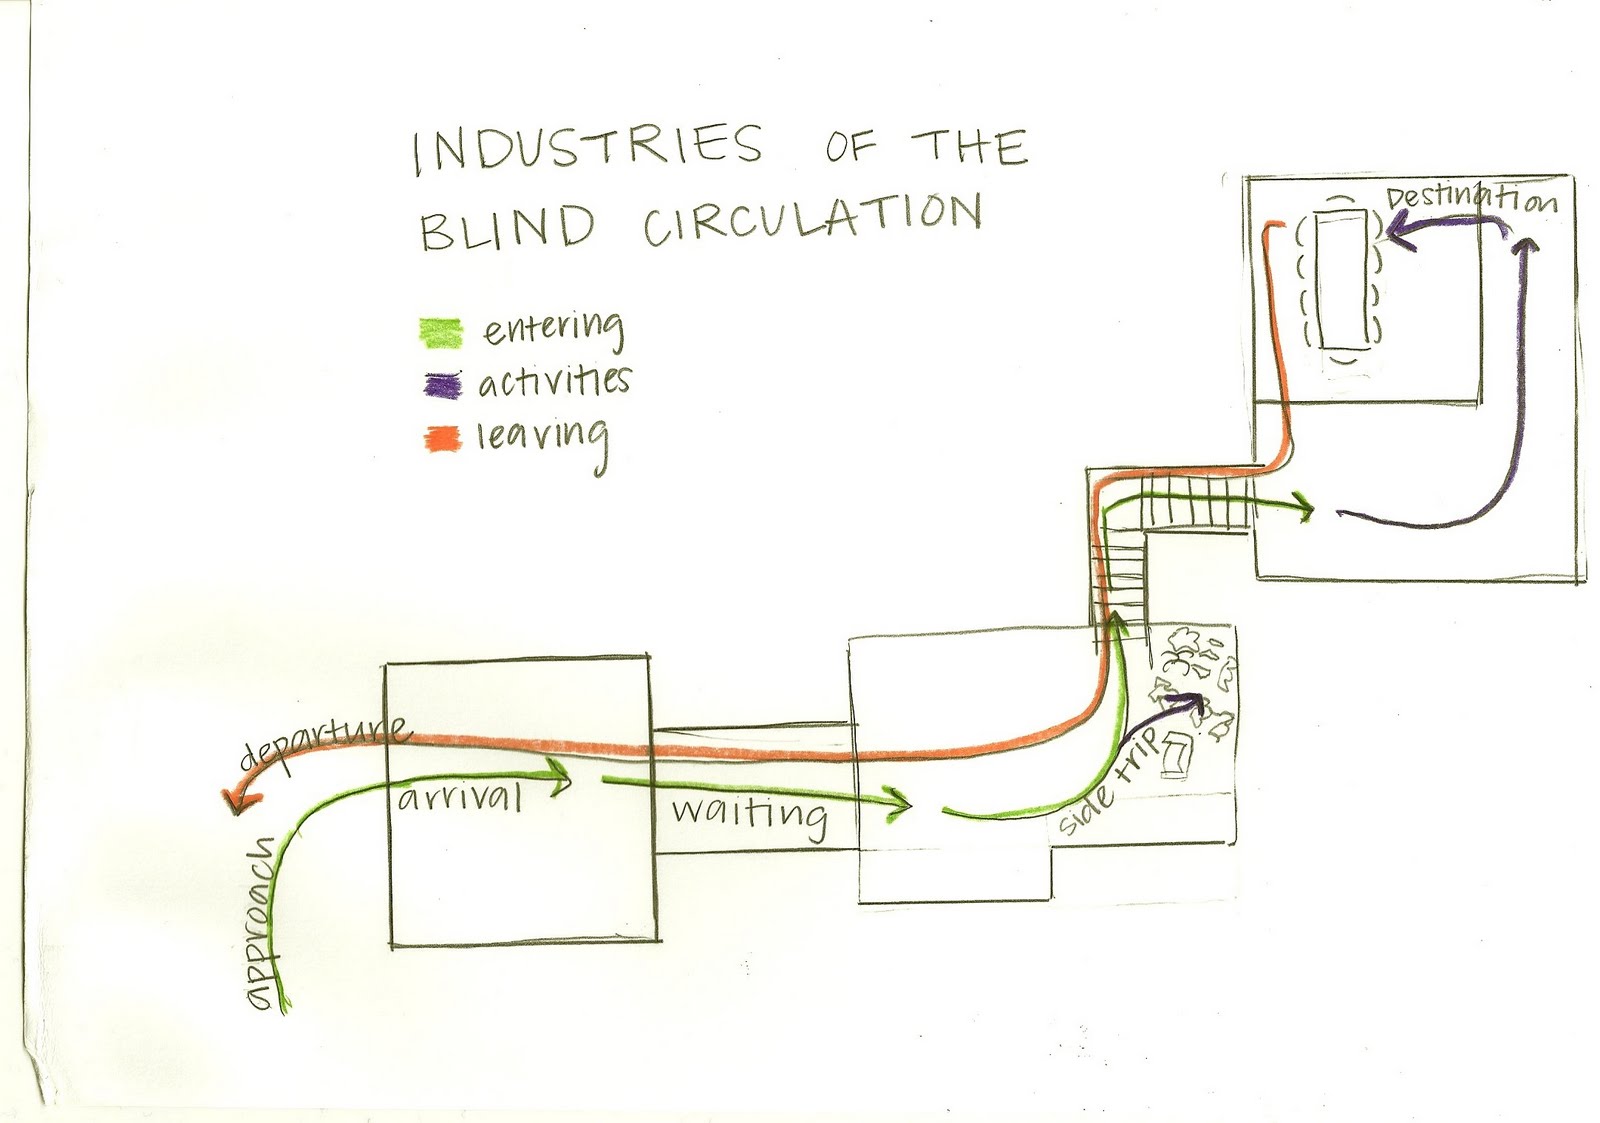 INDUSTRIES OF THE
BLIND CIRCULATION
entering
activities
leaving
Destination
departure
arrival
waiting
side trip
approach